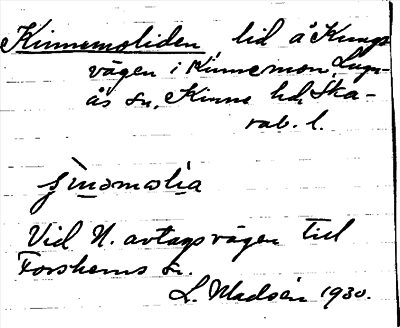 Kinnemoliden, lid å Kungs
vägen i Kinnemon, Lugn-
ås sn, Kinne hd, Ska-
rab. l.
Vid N. avtagsvägen till
Forshems sn.
L. Madsén 1930.